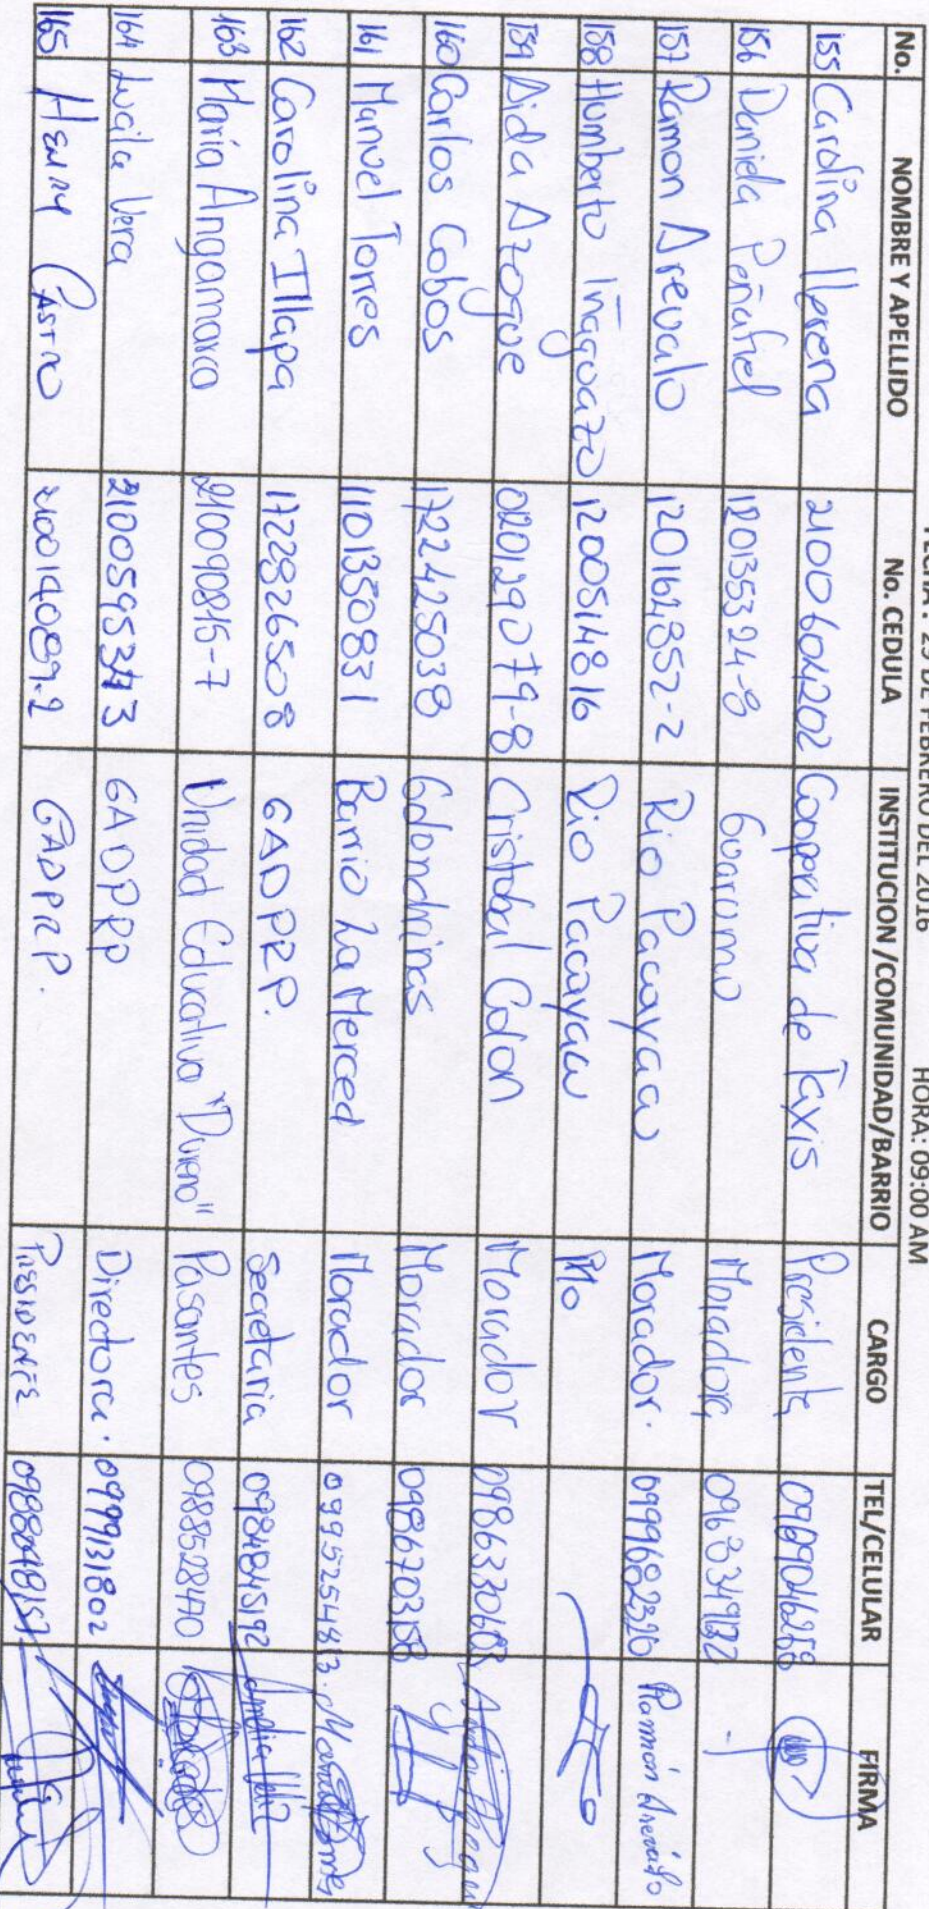 FECHA: 25 DE FEBRERO DEL 2016 HORA: 09:00 AM
No. NOMBRE Y APELLIDO No. CEDULA INSTITUCION /COMUNIDAD/BARRIO CARGO TEL/CELULAR FIRMA
155 Carolina Llerena 2100604202 Cooperativa de Taxis Presidenta 0969046288
156 Daniela Peñafiel 120135324-8 Guarumo Moradora
157 Ramon Arevalo 120164852-2 Rio Pacayacu Morador. 0999682320 Ramón Arevalo
158 Humberto Iñaguazo 1200514816 Rio Pacayacu
159 Aida Azogue 020129079-8 Cristobal Colon Morador
160 Carlos Cobos 1722425038 Golondrinas Morador 0986703158
161 Manuel Torres 1101350831 Barrio La Merced Morador 0995254483. Manuel Torres
162 Carolina Illapa 1722826508 GADPRP. Secretaria 0984845192
163 María Angamarca 210090815-7 Unidad Educativa "Dureno" Pasantes 0988528470
164 Lucila Vera GADPRP Directora. 0999131802
165 Henry Castro 210014089-2 GADPRP. Presidente